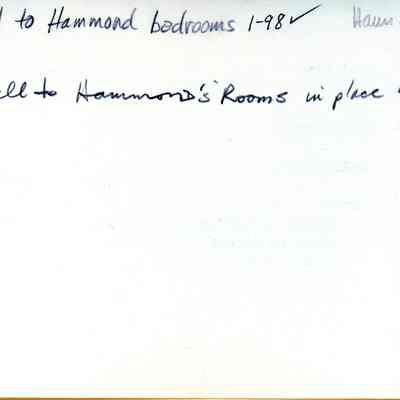 to Hammond bedrooms 1-98✓
to Hammond's Rooms in place